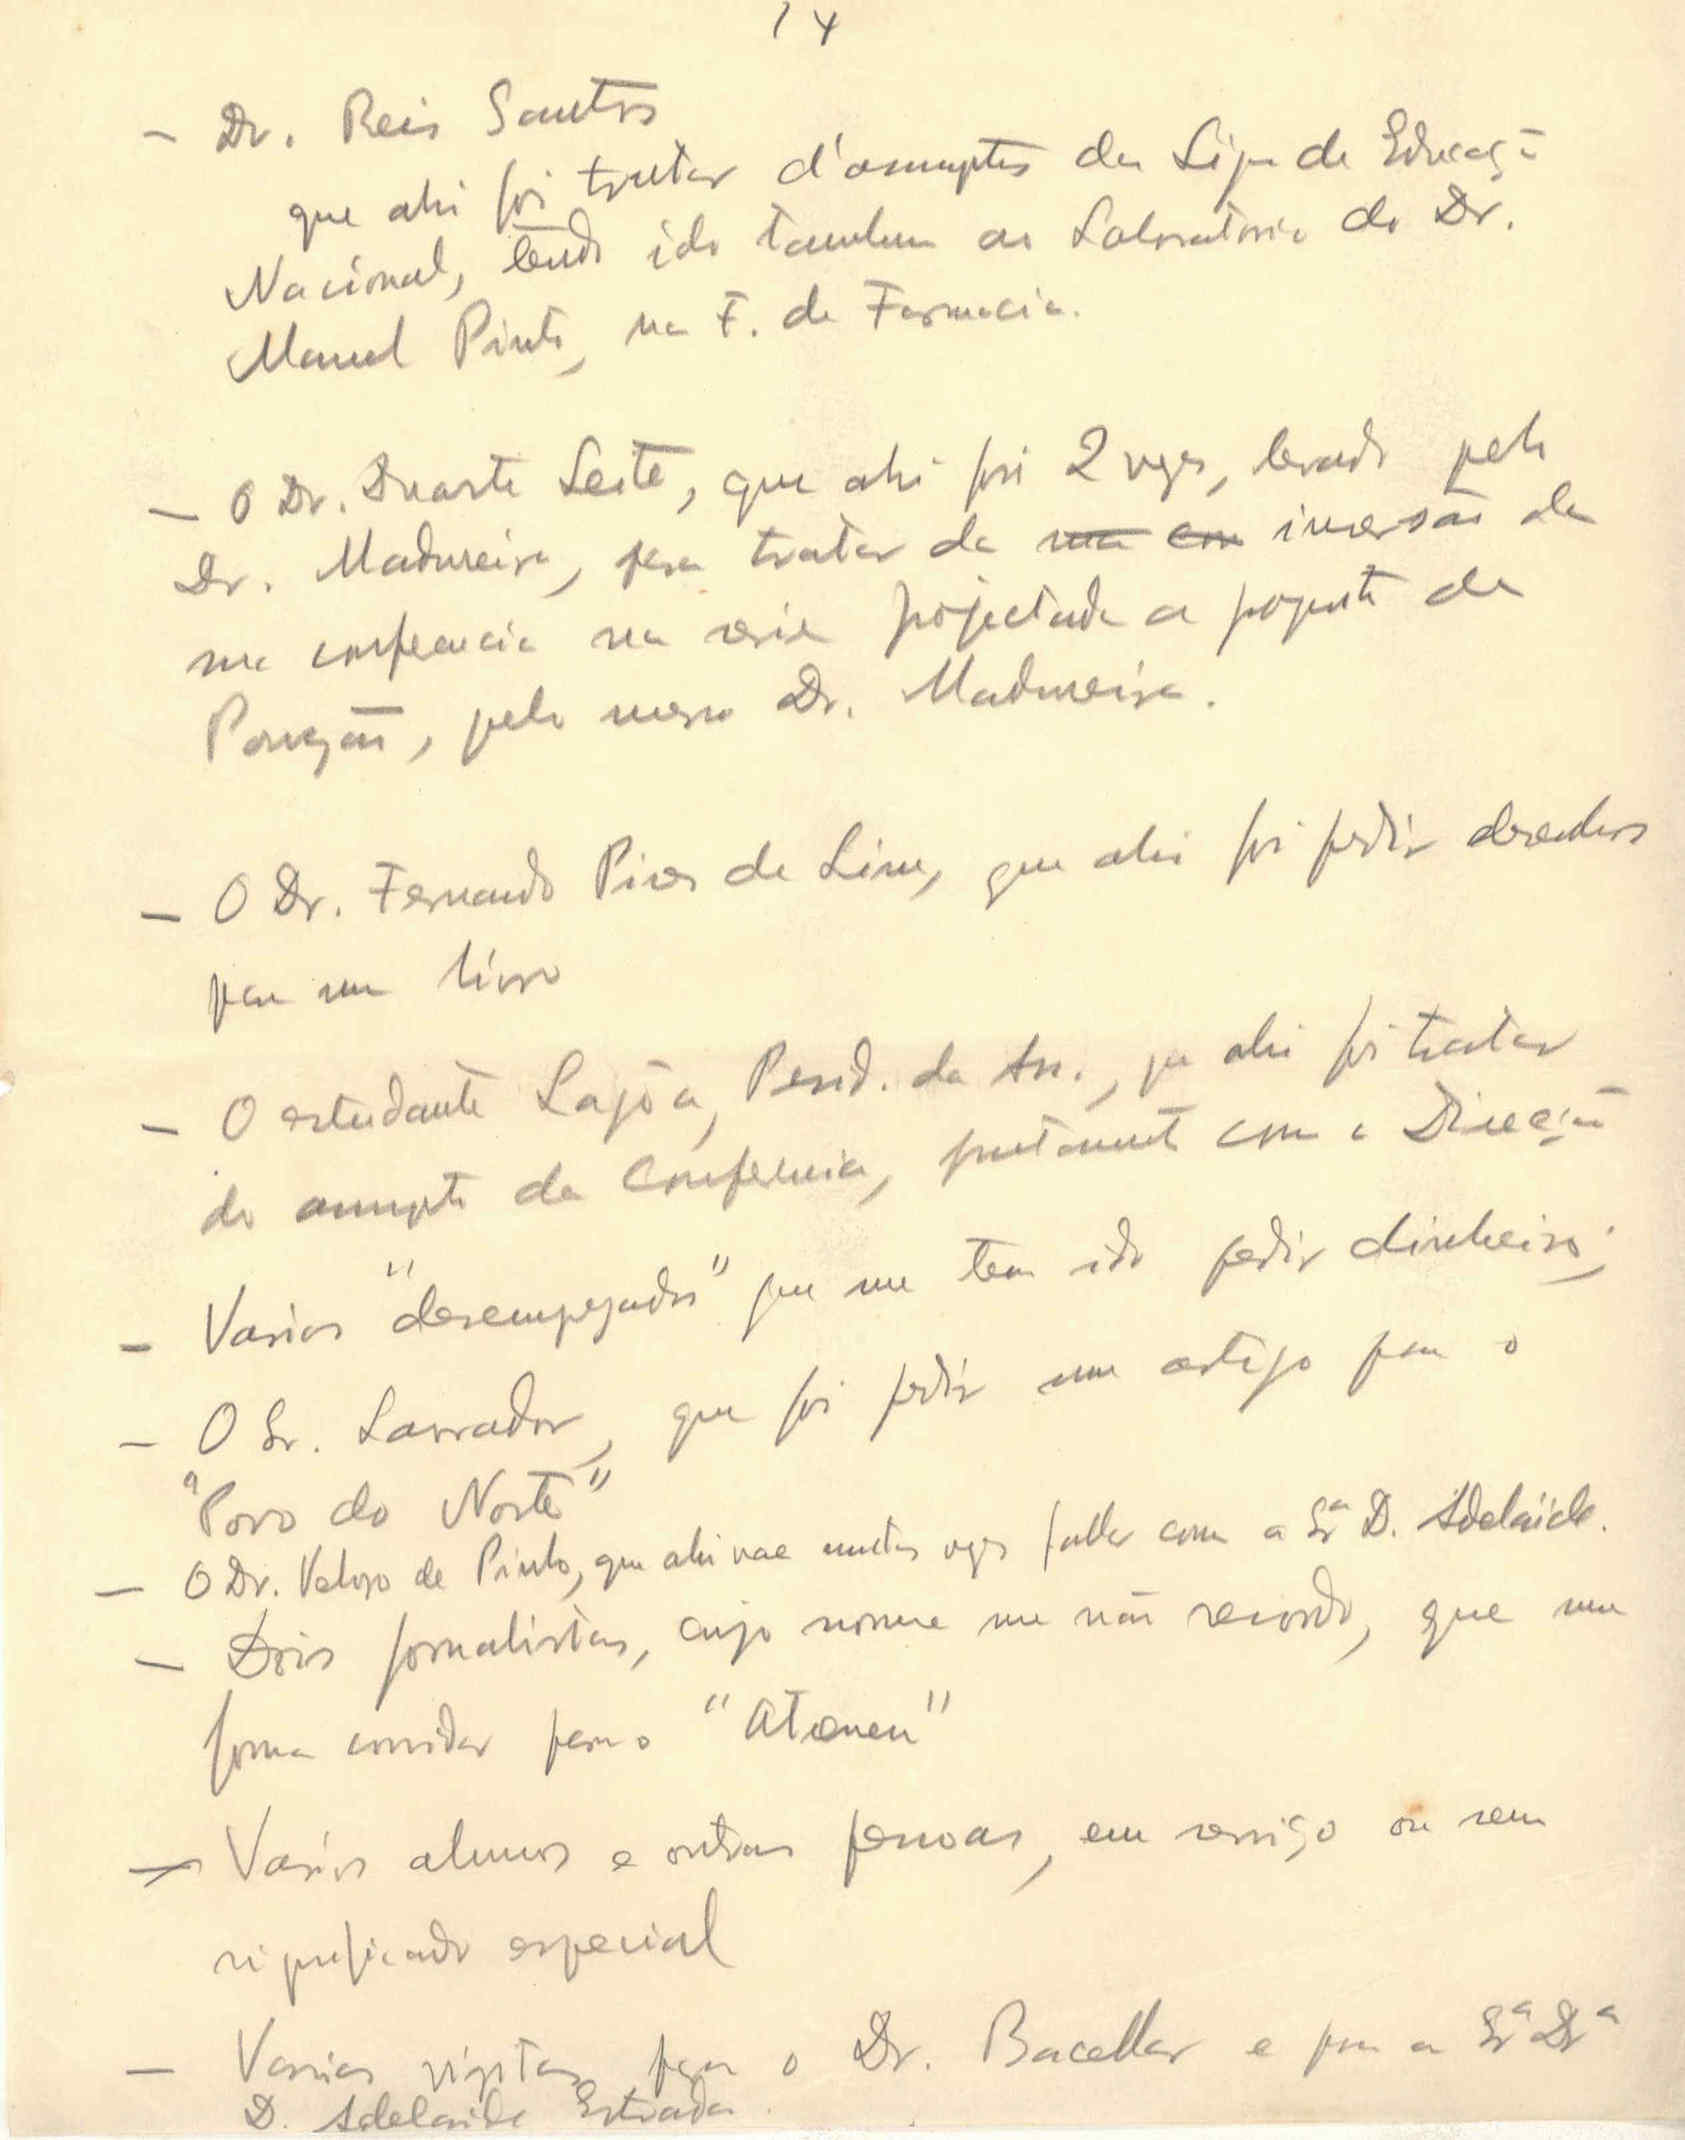 14
- Dr. Reis Santos
que ahi foi tratar d'assumptos da Liga de Educação
Nacional, tendo ido tambem ao Laboratorio do Dr.
Manuel Pinto, na F. de Farmacia.
- O Dr. Duarte Leite, que ahi foi 2 vezes, levado pelo
Dr. Madureira, para tratar da inversão da
sua conferencia na serie projectada a proposito da
, pelo mesmo Dr. Madureira.
- O Dr. Fernando Pires de Lima, que ahi foi pedir desenhos
para um livro
- O estudante Lagôa, Presid. da Ass., que ahi foi tratar
do assumpto da Conferencia, juntamente com a Direcção
- Varios "desempregados" que me tem ido pedir dinheiro;
- O Sr. Lavrador, que foi pedir um artigo para o
"Povo do Norte"
- O Dr. Veloso de Pinho, que ahi vae muitas vezes fallar com a Srª D. Adelaide.
- Dois jornalistas, cujo nome me não recordo, que me
foram convidar para o "Ateneu"
- Varios alumos e outras pessoas, em serviço ou sem
significado especial
- Varias visitas para o Dr. Bacellar e para a Srª Drª
D. Adelaide Estrada.